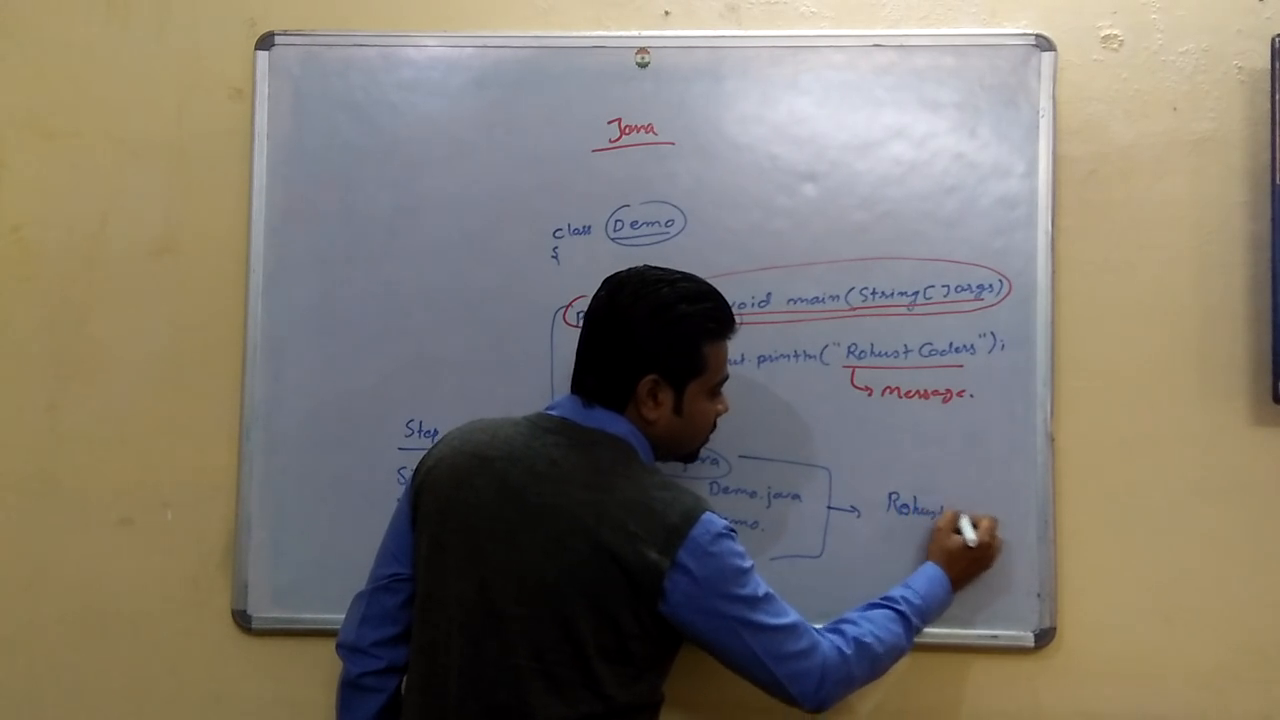 Java
class Demo
{
void main(String[]args)
out.println("Robust Coders");
Message.
Step
Demo.java
Robust